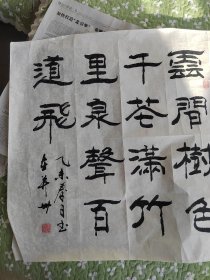 雲間樹色
千花滿竹
里泉聲百
道飛
乙未春月書